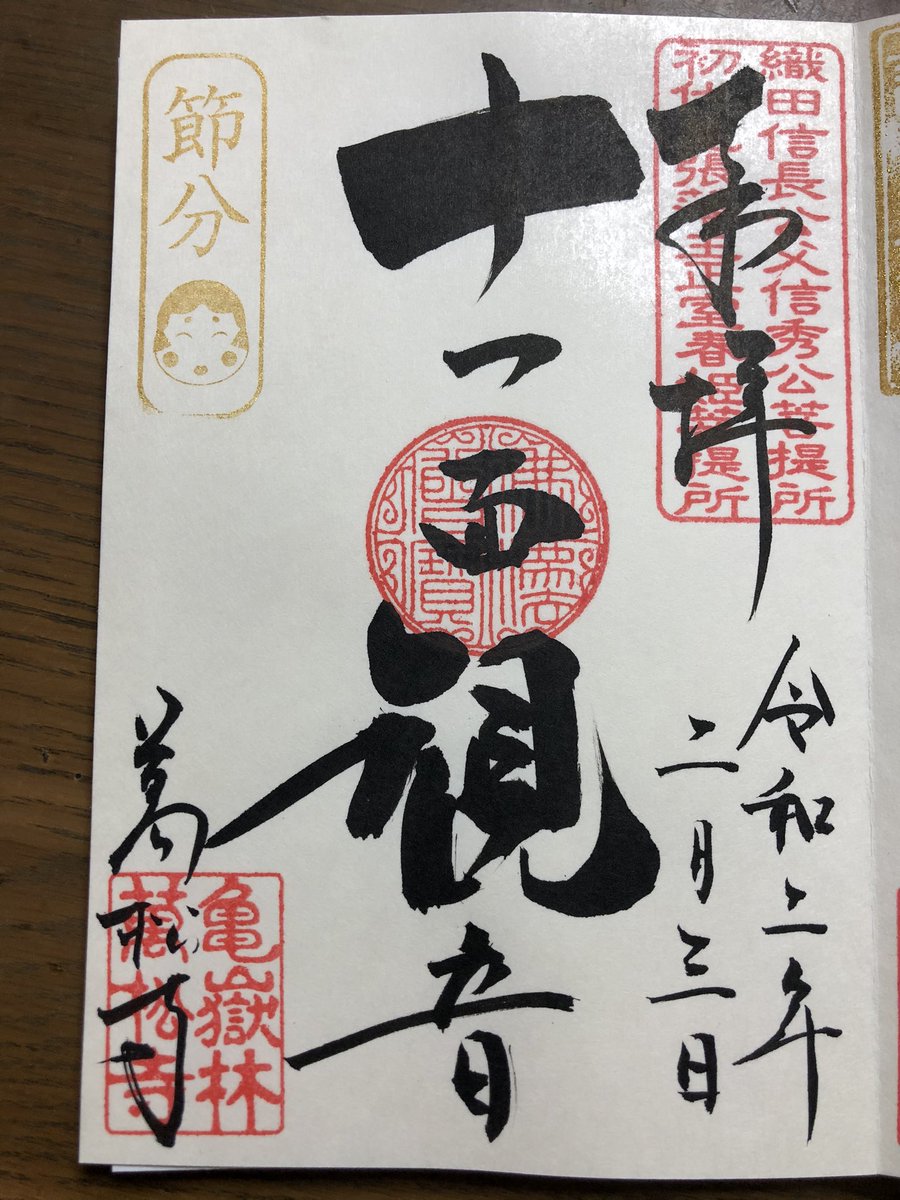 織田信長公父信秀公菩提所
初代尾張藩主正室春姫菩提所
奉拝
令和二年
二月三日
十一面観音
節分
萬松寺
亀嶽林
萬松寺